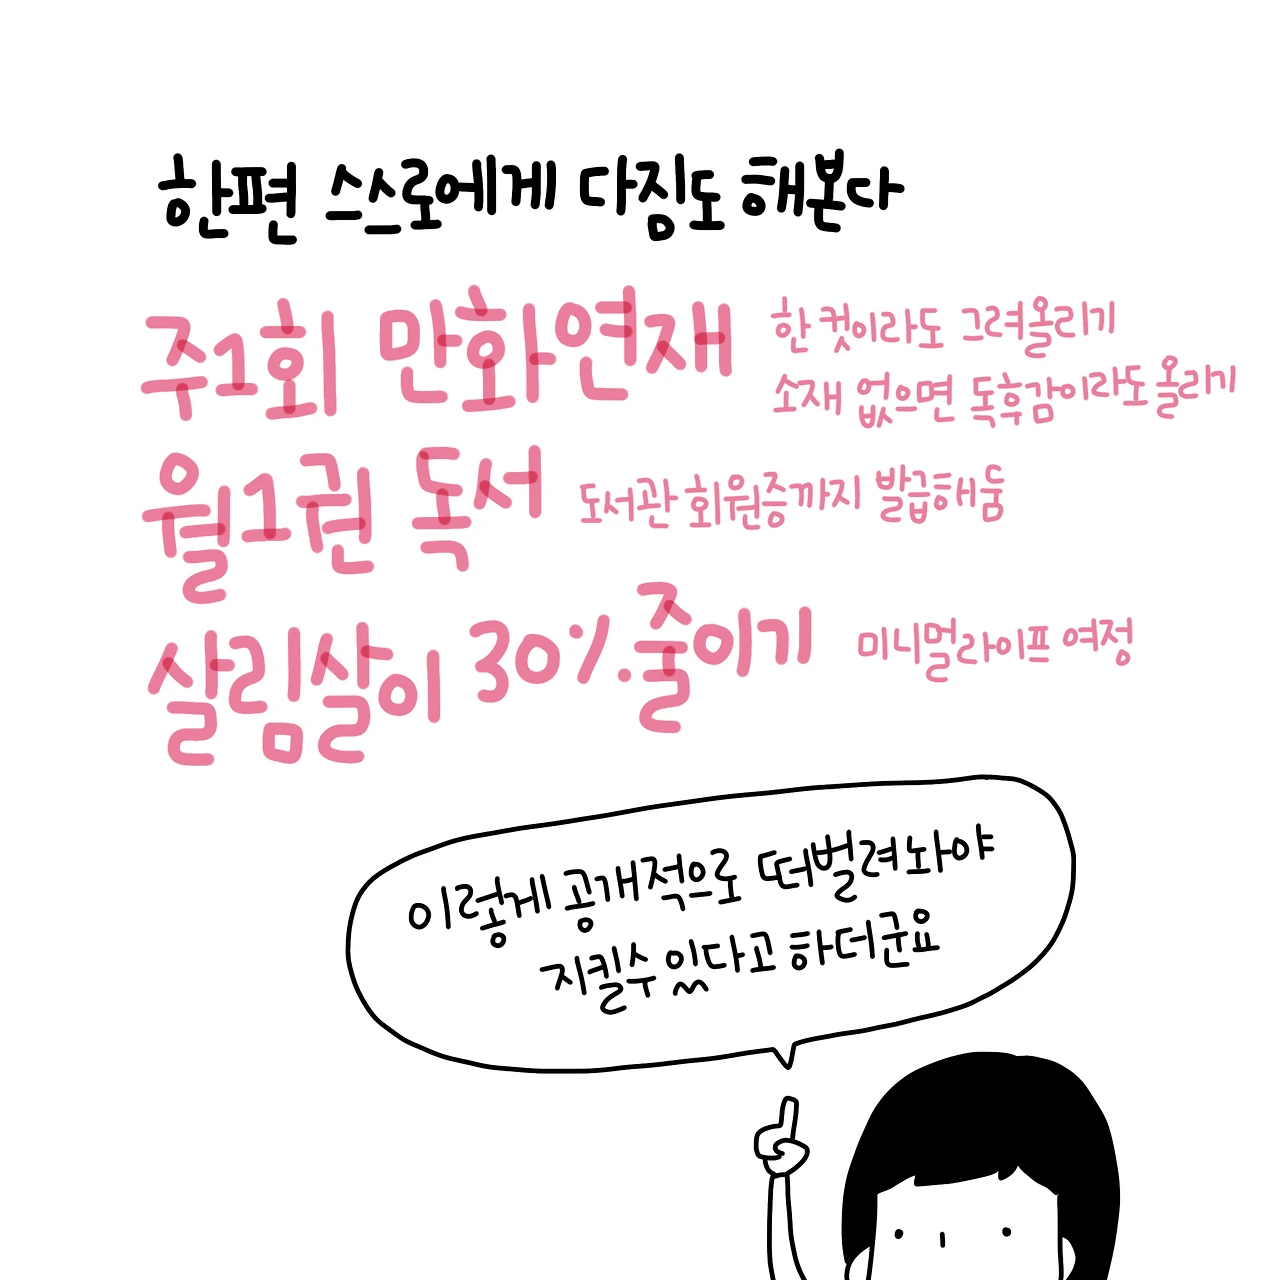 한편 스스로에게 다짐도 해본다
주1회 만화연재
한 컷이라도 그려올리기
소재 없으면 독후감이라도 올리기
월1권 독서
도서관 회원증까지 발급해둠
살림살이 30%.줄이기
미니멀라이프 여정
이렇게 공개적으로 떠벌려놔야
지킬수있다고 하더군요